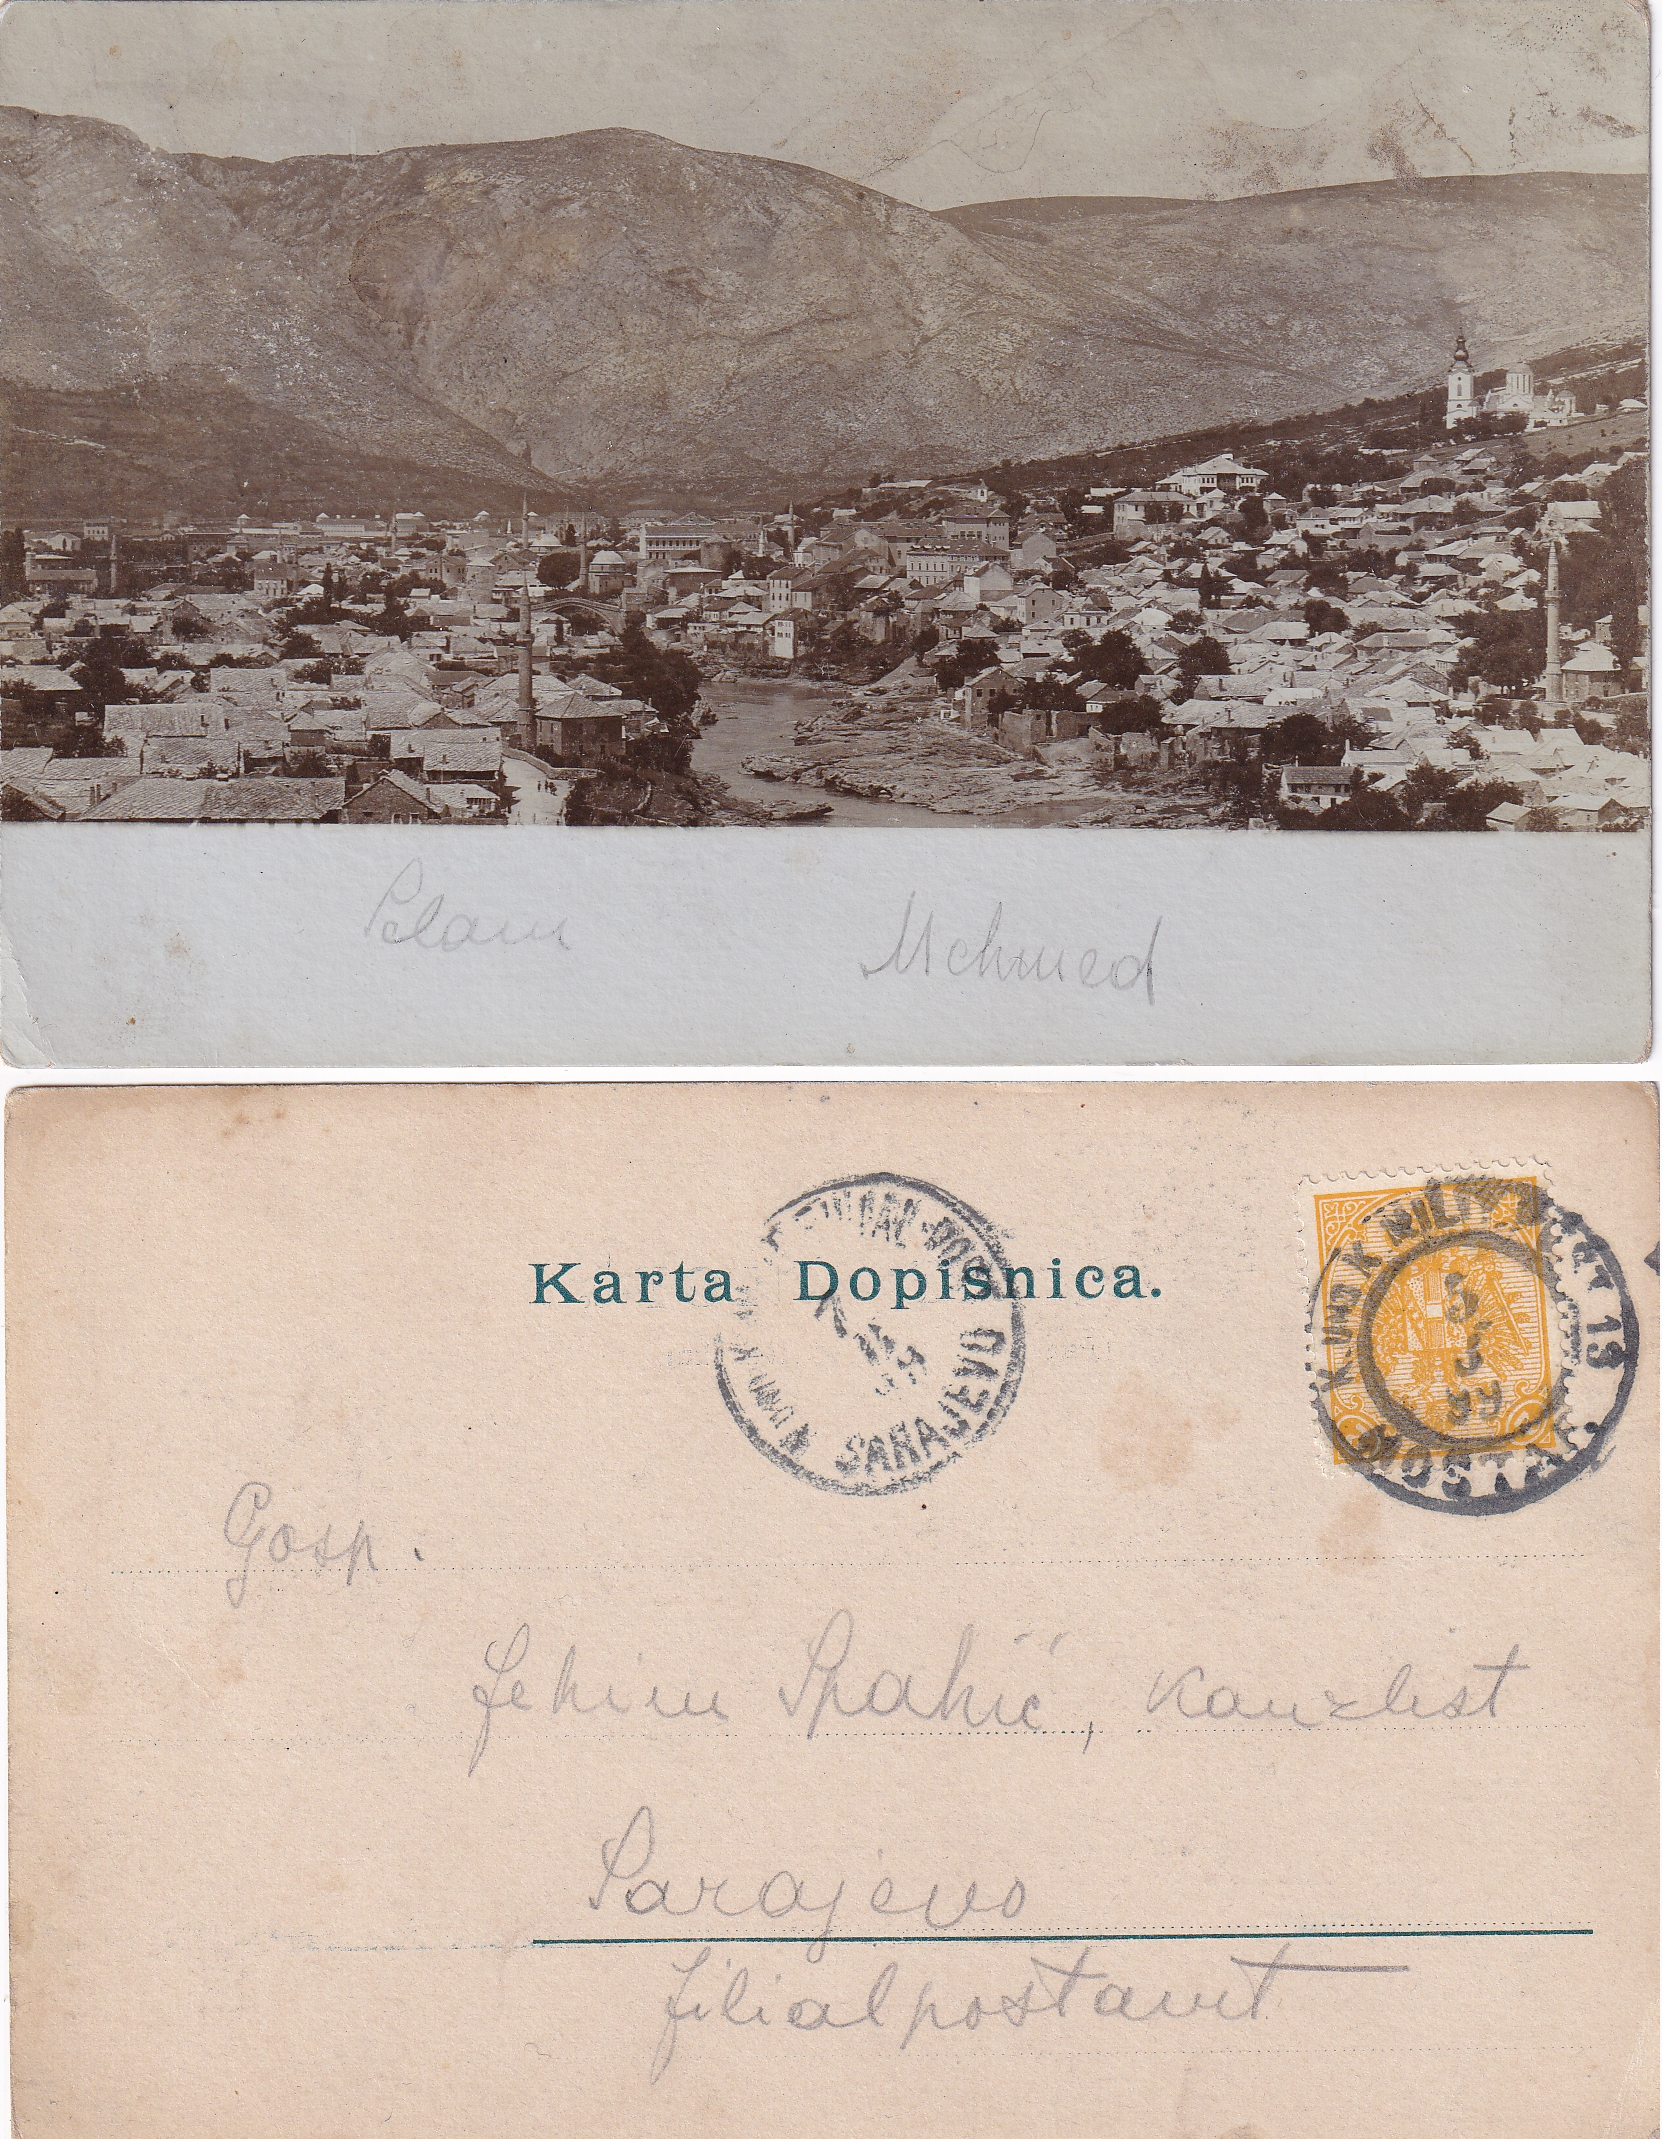 Selam Mehmed
Karta Dopisnica.
SARAJEVO
K. UND K. MILIT. POST 13
5
3
99
MOSTAR
Gosp.
Fehim Spahić, Kanzlist
Sarajevo
Filialpostamt